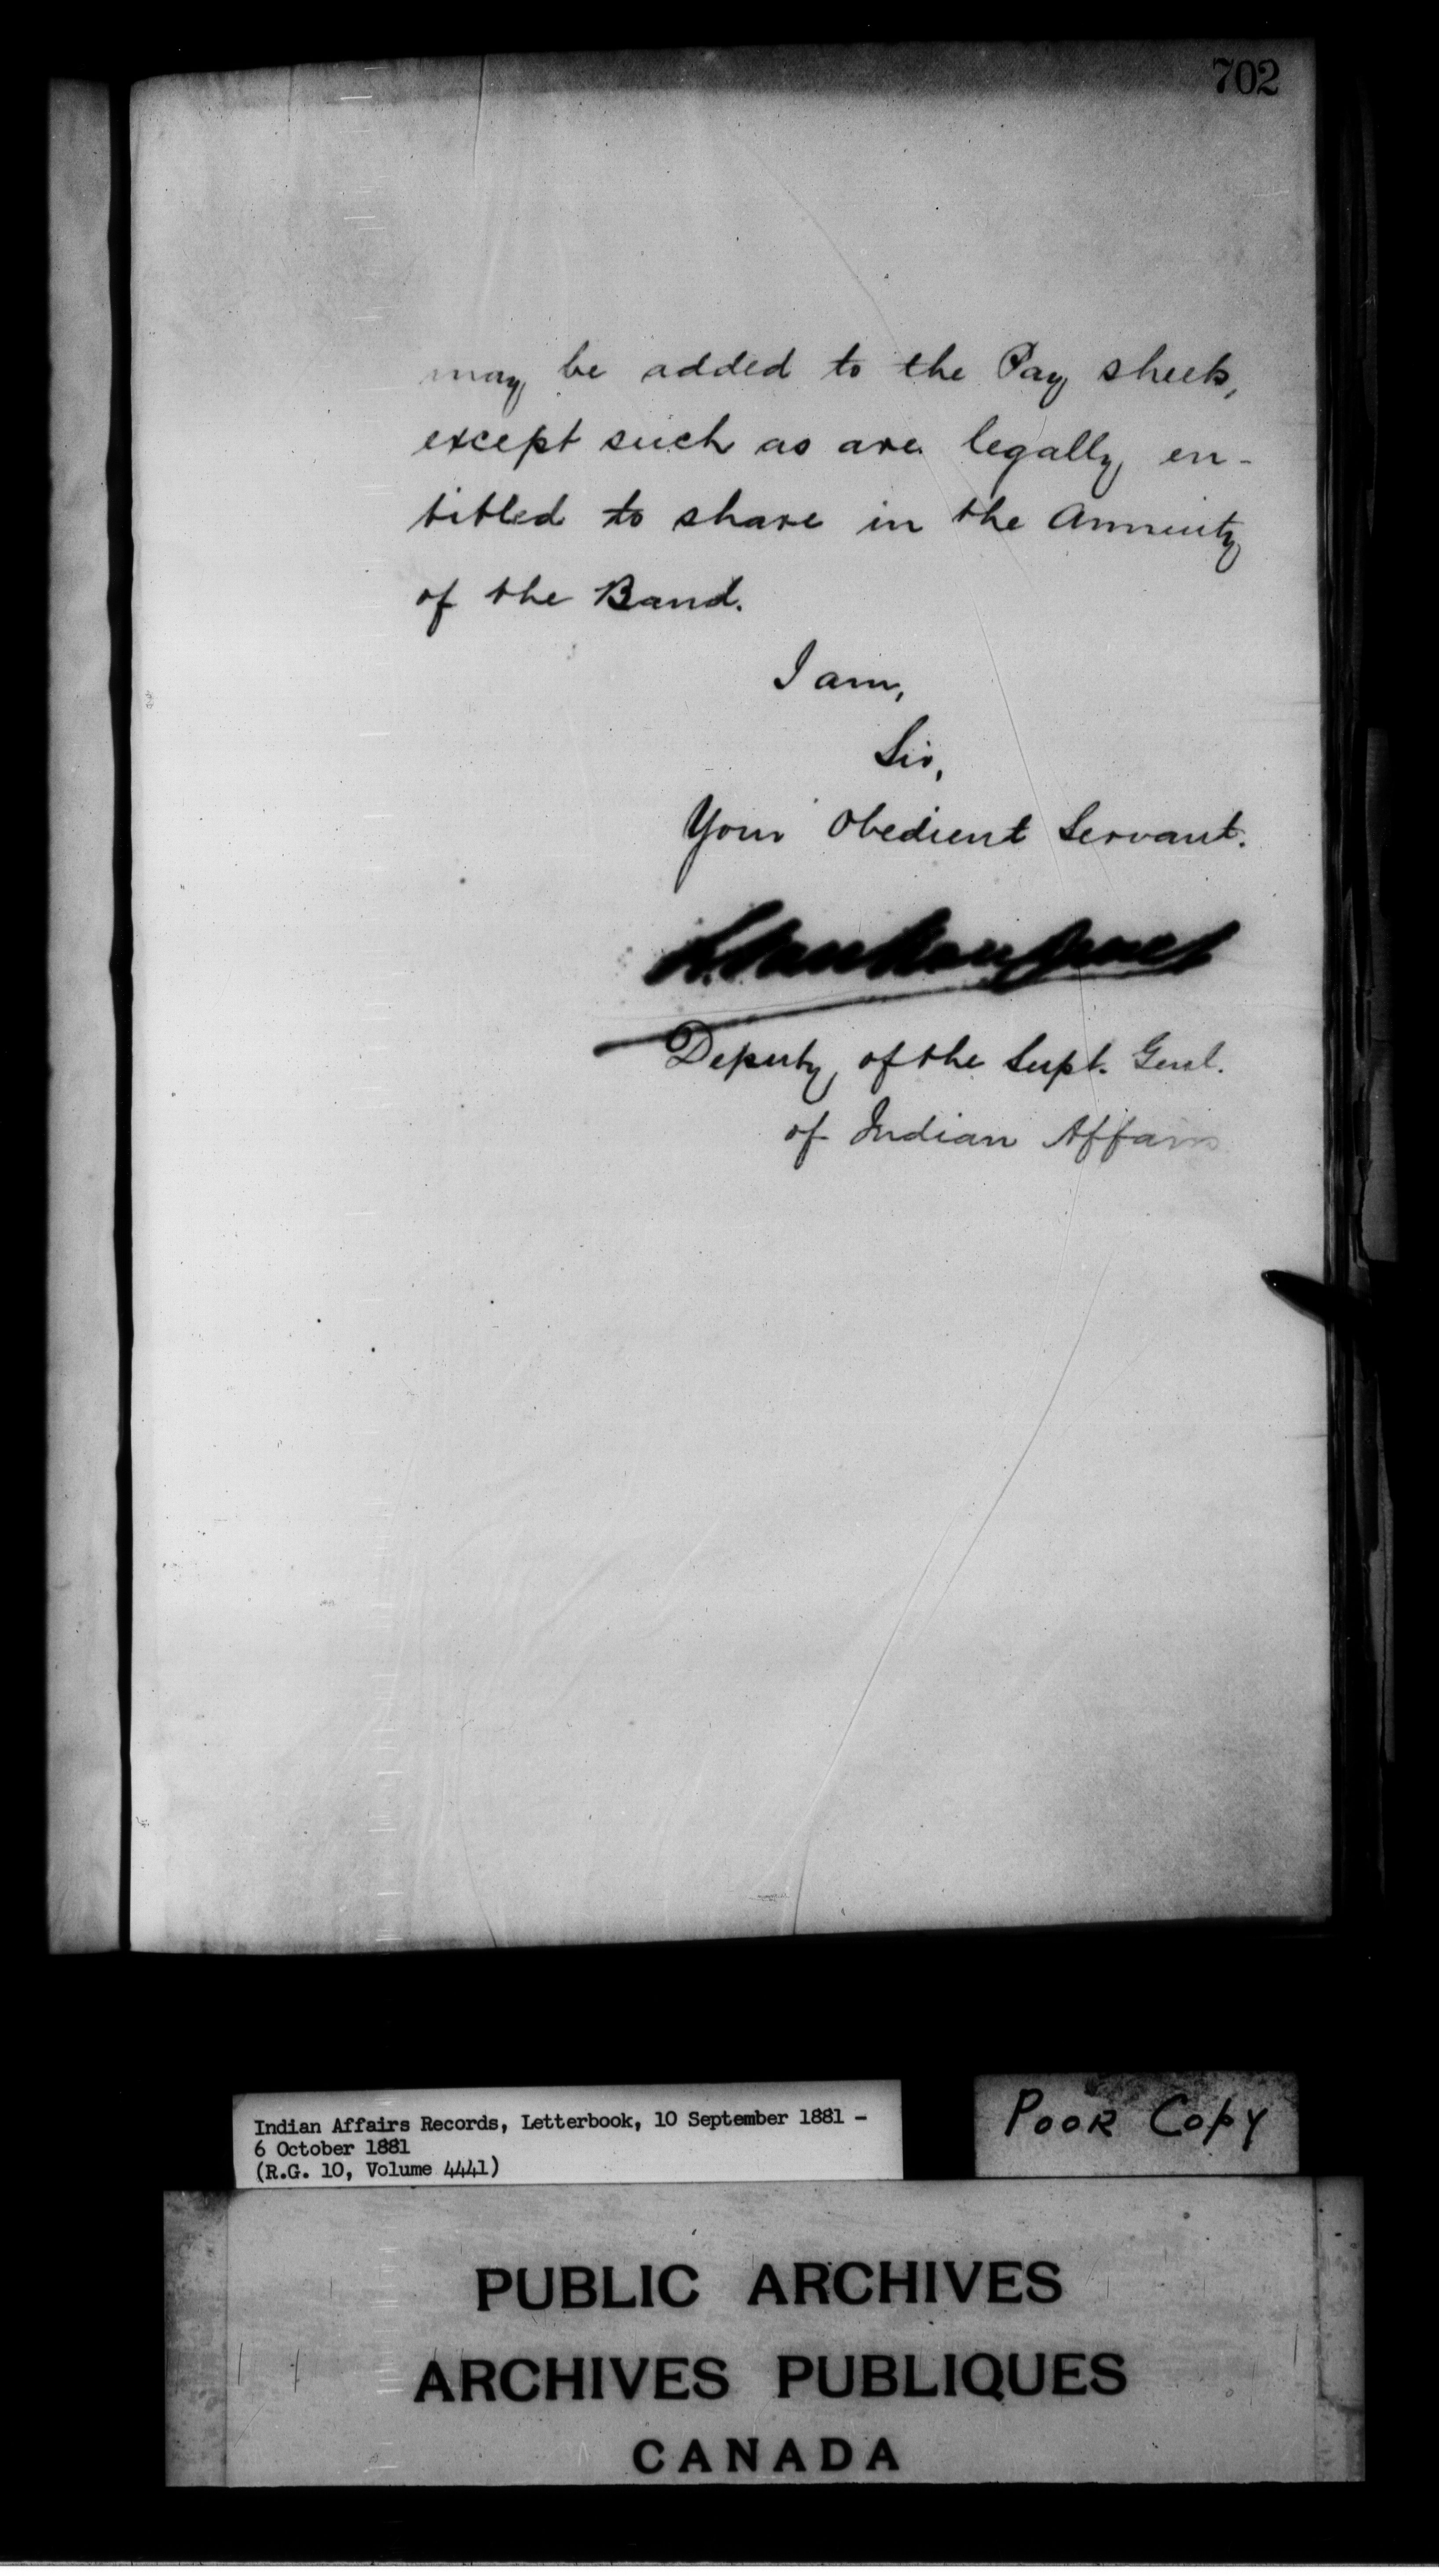 702
may be added to the Pay sheets,
except such as are legally en-
titled to share in the Annuity
of the Band.
I am,
Sir,
Your Obedient Servant.
L. Vankoughnet
Deputy of the Supt. Genl.
of Indian Affairs
Indian Affairs Records, Letterbook, 10 September 1881 -
6 October 1881
(R.G. 10, Volume 4441)
POOR COPY
PUBLIC ARCHIVES
ARCHIVES PUBLIQUES
CANADA